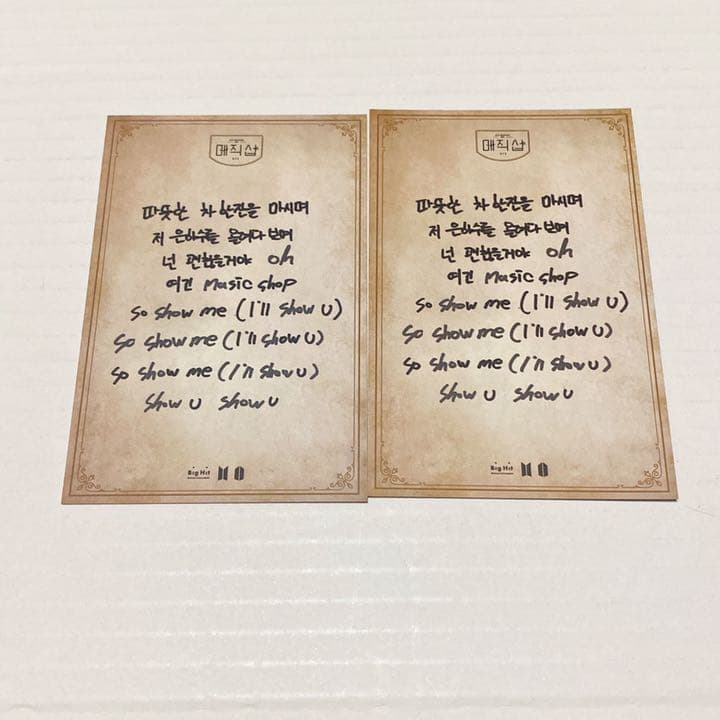 매직샵
따뜻한 차 한잔을 마시며
저 은하수를 올려다 보며
넌 괜찮을거야 oh
여긴 Magic shop
So show me (I'll show U)
So show me (I'll show U)
So show me (I'll show U)
Show U show U
Big Hit
매직샵
따뜻한 차 한잔을 마시며
저 은하수를 올려다 보며
넌 괜찮을거야 oh
여긴 Magic shop
So show me (I'll show U)
So show me (I'll show U)
So show me (I'll show U)
Show U show U
Big Hit